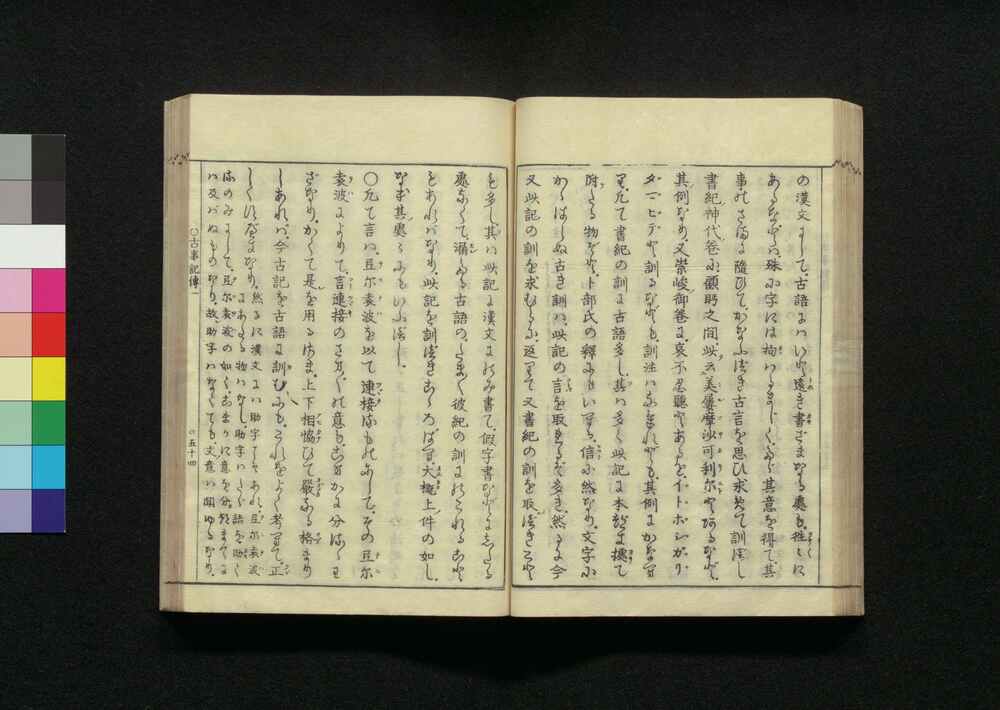 の漢文にして、古語にはいと遠き書ざまなる處も、往々に
あるなどは、殊に字には拘はるまじく、たゞ其意を得て、其
事のさまに隨ひて、かなふべき古言を思ひ求めて訓べし
書紀神代卷に顧眄之間、此云美屢摩沙可利爾とあるなど、
其例なり、又崇峻御卷に、哀不忍聽とあるをイトホシガリ
タマヒテと訓るなども、訓注はなけれども、其例にかなへり
凡て書紀の訓に古語多し、其は多く此記に本づき據て
附たる物ぞと、卜部氏の釋にもいへる、信に然なり、文字に
かゝはらぬ古き訓は、此記の言を取れるぞ多き、然るを今
又此記の訓を求むるに、返りて又書紀の訓を取べきこと
も多し、其は此記は漢文にのみ書て、假字書などにしたる
處なくて、漏ぬる古語の、たま〳〵彼紀の訓にのこれること
もあればなり、此記を訓べきこゝろばへ、大概上件の如し、
なほ其處々にもいふべし、
○凡て言は、弖爾袁波を以て連接るものにして、その弖爾
袁波によりて、言連接のさま〴〵の意も、こまかに分るゝわ
ざなり、かくて是を用るさま、上下相協ひて嚴なる格まり
しあれば、今古記を古語に訓むにも、これをよく考へて、正
しくすべきなり、然るに漢文には助字こそあれ、弖爾袁波
にあたる物はなし、助字はたゞ語を助く
るのみにして、弖爾袁波の如く、こまかに意を分つまでに
は及ばぬものなり、故助字はなくても、文意は聞ゆるなり、
○古事記傳一
○五十四